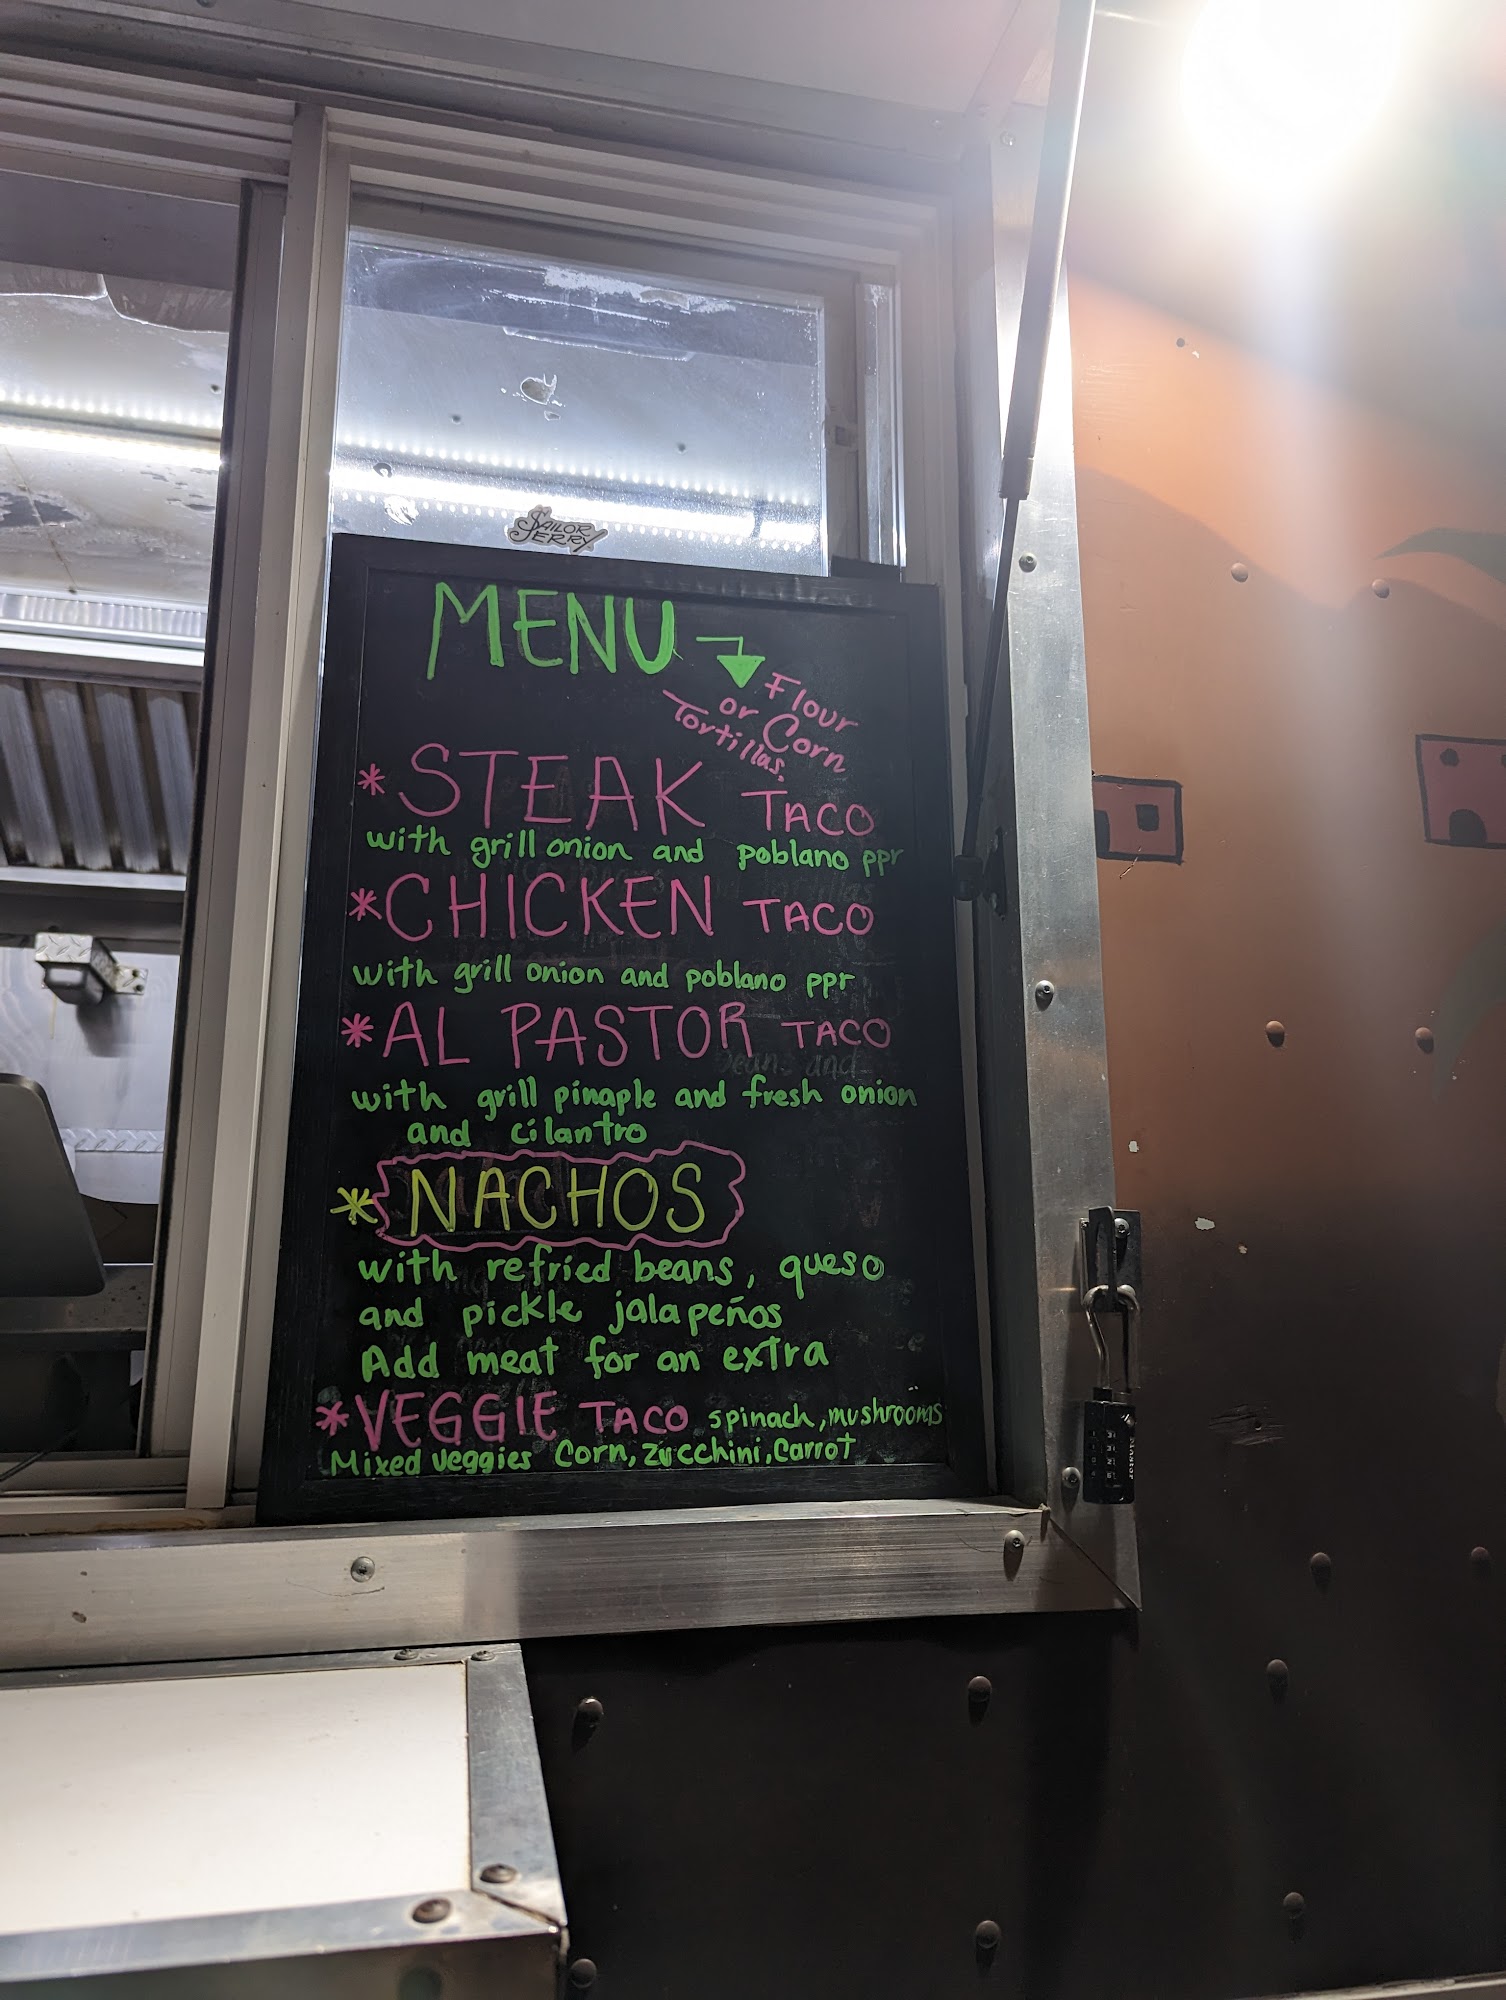 SAILOR
JERRY
MENU
Flour
or Corn
Tortillas,
*STEAK TACO
with grill onion and poblano ppr
*CHICKEN TACO
with grill onion and poblano ppr
*AL PASTOR TACO
beans and
with grill pinaple and fresh onion
and cilantro
*NACHOS
with refried beans, queso
and pickle jalapeños
Add meat for an extra
*VEGGIE TACO spinach, mushrooms
Mixed veggies Corn, zucchini, Carrot